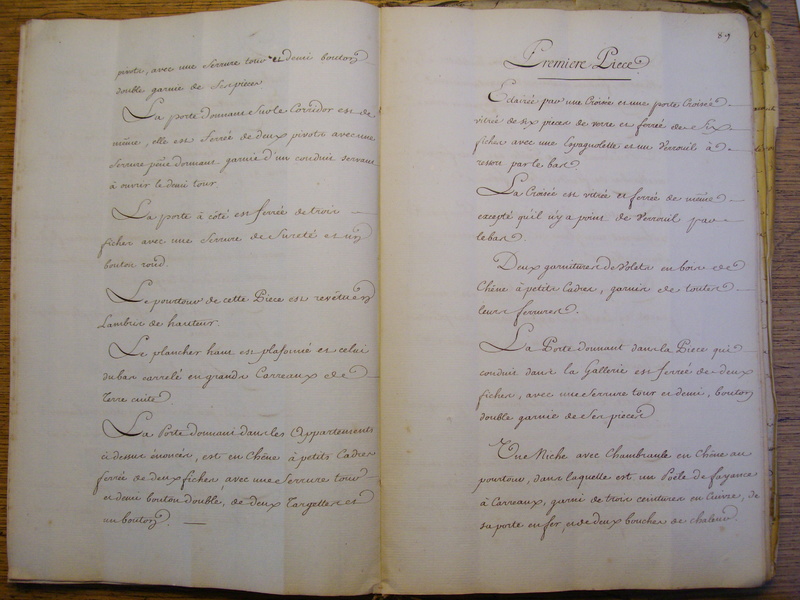 pivots, avec une Serrure tour et demi bouton
double garnie de Ses pieces
La porte donnant Sur le Corridor est de
même, elle est ferrée de deux pivots avec une
Serrure péne dormant garnie d'un conduit servant
à ouvrir le demi tour.
La porte à côté est ferrée de trois
fiches avec une Serrure de Sureté et un
bouton rond.
Le pourtour de cette Piece est revêtu en
Lambris de hauteur.
Le plancher haut est plafonné et celui
du bas carrelé en grands Carreaux de
Terre cuite
La Porte donnant dans les Appartements
ci dessus énoncés, est en Chêne à petits Cadres
ferrée de deux fiches, avec une Serrure tour
et demi bouton double, de deux Targettes et
un bouton.
89
Premiere Piece
Eclairée par une Croisée et une porte Croisée
vitrée de six pieces de verre et ferrée de Six
fiches avec une Espagnolette et un Verrouil à
ressort par le bas.
La Croisée est vitrée et ferrée de même
excepté qu'il n'y a point de Verrouil par
le bas.
Deux garnitures de Volets en bois de
Chêne à petits Cadres, garnis de toutes
leurs ferrures.
La Porte donnant dans la Piece qui
conduit dans la Gallerie est ferrée de deux
fiches, avec une Serrure tour et demi, bouton
double garnie de Ses pieces
Une Niche avec Chambranle en Chêne au
pourtour, dans laquelle est un Poële de fayance
à Carreaux, garni de trois ceintures en Cuivre, de
sa porte en fer, et de deux bouches de chaleur.